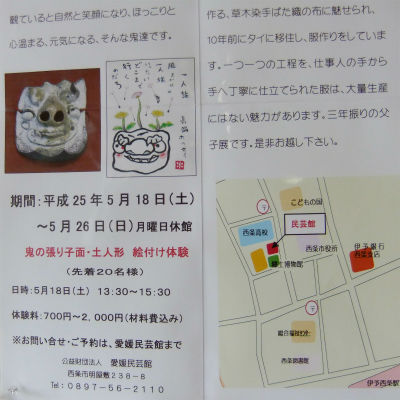 観ていると自然と笑顔になり、ほっこりと
心温まる、元気になる、そんな鬼達です。
期間：平成25年5月18日（土）
～5月26日（日）月曜日休館
鬼の張り子面・土人形 絵付け体験
（先着20名様）
日時：5月18日（土） 13：30～15：30
体験料：700円～2,000円（材料費込み）
※お問い合せ・ご予約は、愛媛民芸館まで
公益財団法人 愛媛民芸館
西条市明屋敷238-8
Tel：0897-56-2110
作る、草木染手ばた織の布に魅せられ、
10年前にタイに移住し、服作りをしていま
す。一つ一つの工程を、仕事人の手から
手へ丁寧に仕立てられた服は、大量生産
にはない魅力があります。三年振りの父
子展です。是非お越し下さい。
こどもの国
民芸館
西条高校
西条市役所
伊予銀行
西条支店
郷土博物館
総合福祉
西条図書館
伊予西条駅